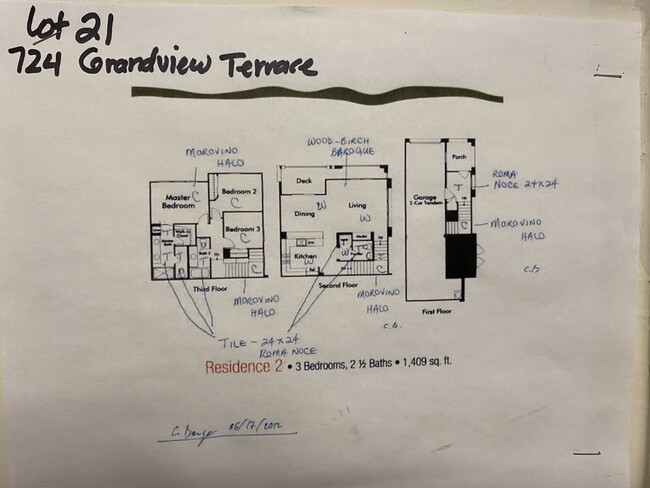 Lot 21
724 Grandview Terrace
MOROVINO
HALO
WOOD-BIRCH
BAROQUE
Master
Bedroom
C
Bedroom 2
C
Bedroom 3
C
T
T
T
C
Third Floor
MOROVINO
HALO
Deck
Dining
Living
W
W
Kitchen
W
W
T
C
Second Floor
MOROVINO
HALO
c.b.
Porch
Garage
2-Car Tandem
T
C
First Floor
ROMA
NOCE 24x24
MOROVINO
HALO
c.b
TILE - 24x24
ROMA NOCE
Residence 2 • 3 Bedrooms, 2 ½ Baths • 1,409 sq. ft.